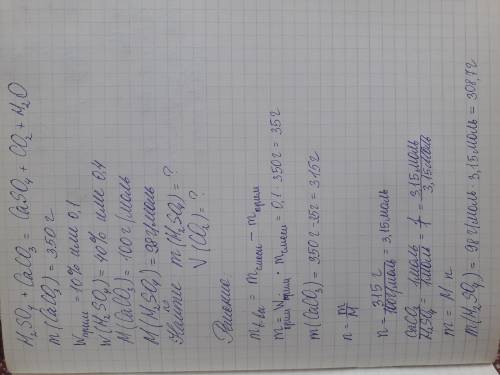 H₂SO₄ + CaCO₃ = CaSO₄ + CO₂ + H₂O
m(CaCO₃) = 350 г
Wприм = 10% или 0,1
W(H₂SO₄) = 40% или 0,4
M(CaCO₃) = 100 г/моль
M(H₂SO₄) = 98 г/моль
Найти m(H₂SO₄) = ?
V(CO₂) = ?
Решение:
mв-ва = mсмеси − mприм
mприм = Wприм · mсмеси = 0,1 · 350 г = 35 г
m(CaCO₃) = 350 г - 35 г = 315 г
n = m/M
n = 315 г / 100 г/моль = 3,15 моль
CaCO₃/H₂SO₄ = 1 моль/1 моль = 1/1 = 3,15 моль/3,15 моль
m = M · n
m(H₂SO₄) = 98 г/моль · 3,15 моль = 308,7 г